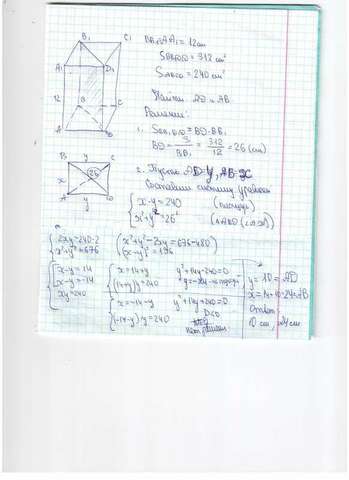 B₁ C₁
A₁ D₁
12
B C
A D
BB₁=AA₁=12см
S =312 см²
S ABCD=240 см²
Найти AD и AB.
Решение:
1. S BB₁D₁D = BD·BB₁
BD = S/BB₁ = 312/12 = 26 (см)
B y C
x 26
A y D
2. Пусть AD-y, AB-x
Составим систему уравнен
x·y=240 (площадь)
x²+y²=26² (ΔABD
2xy=240·2
x²+y²=676
x²+y²-2xy=676-480
(x-y)²=196
x-y=14
x-y=-14
xy=240
x=14+y
(14+y)y=240
x=-14+y
(-14+y)y=240
y²+14y-240=0
y=-24-не подход
D<0
нет решен
y=10=AD
x=14+10=24=AB
Ответ:
10 см, 24 см